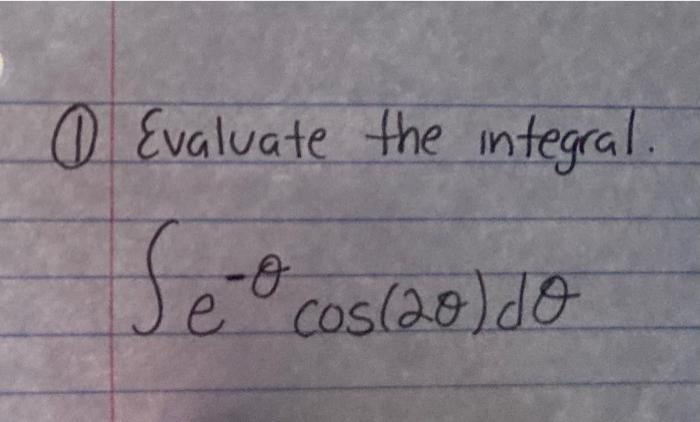 ① Evaluate the integral.
∫e^-θ cos(2θ)dθ